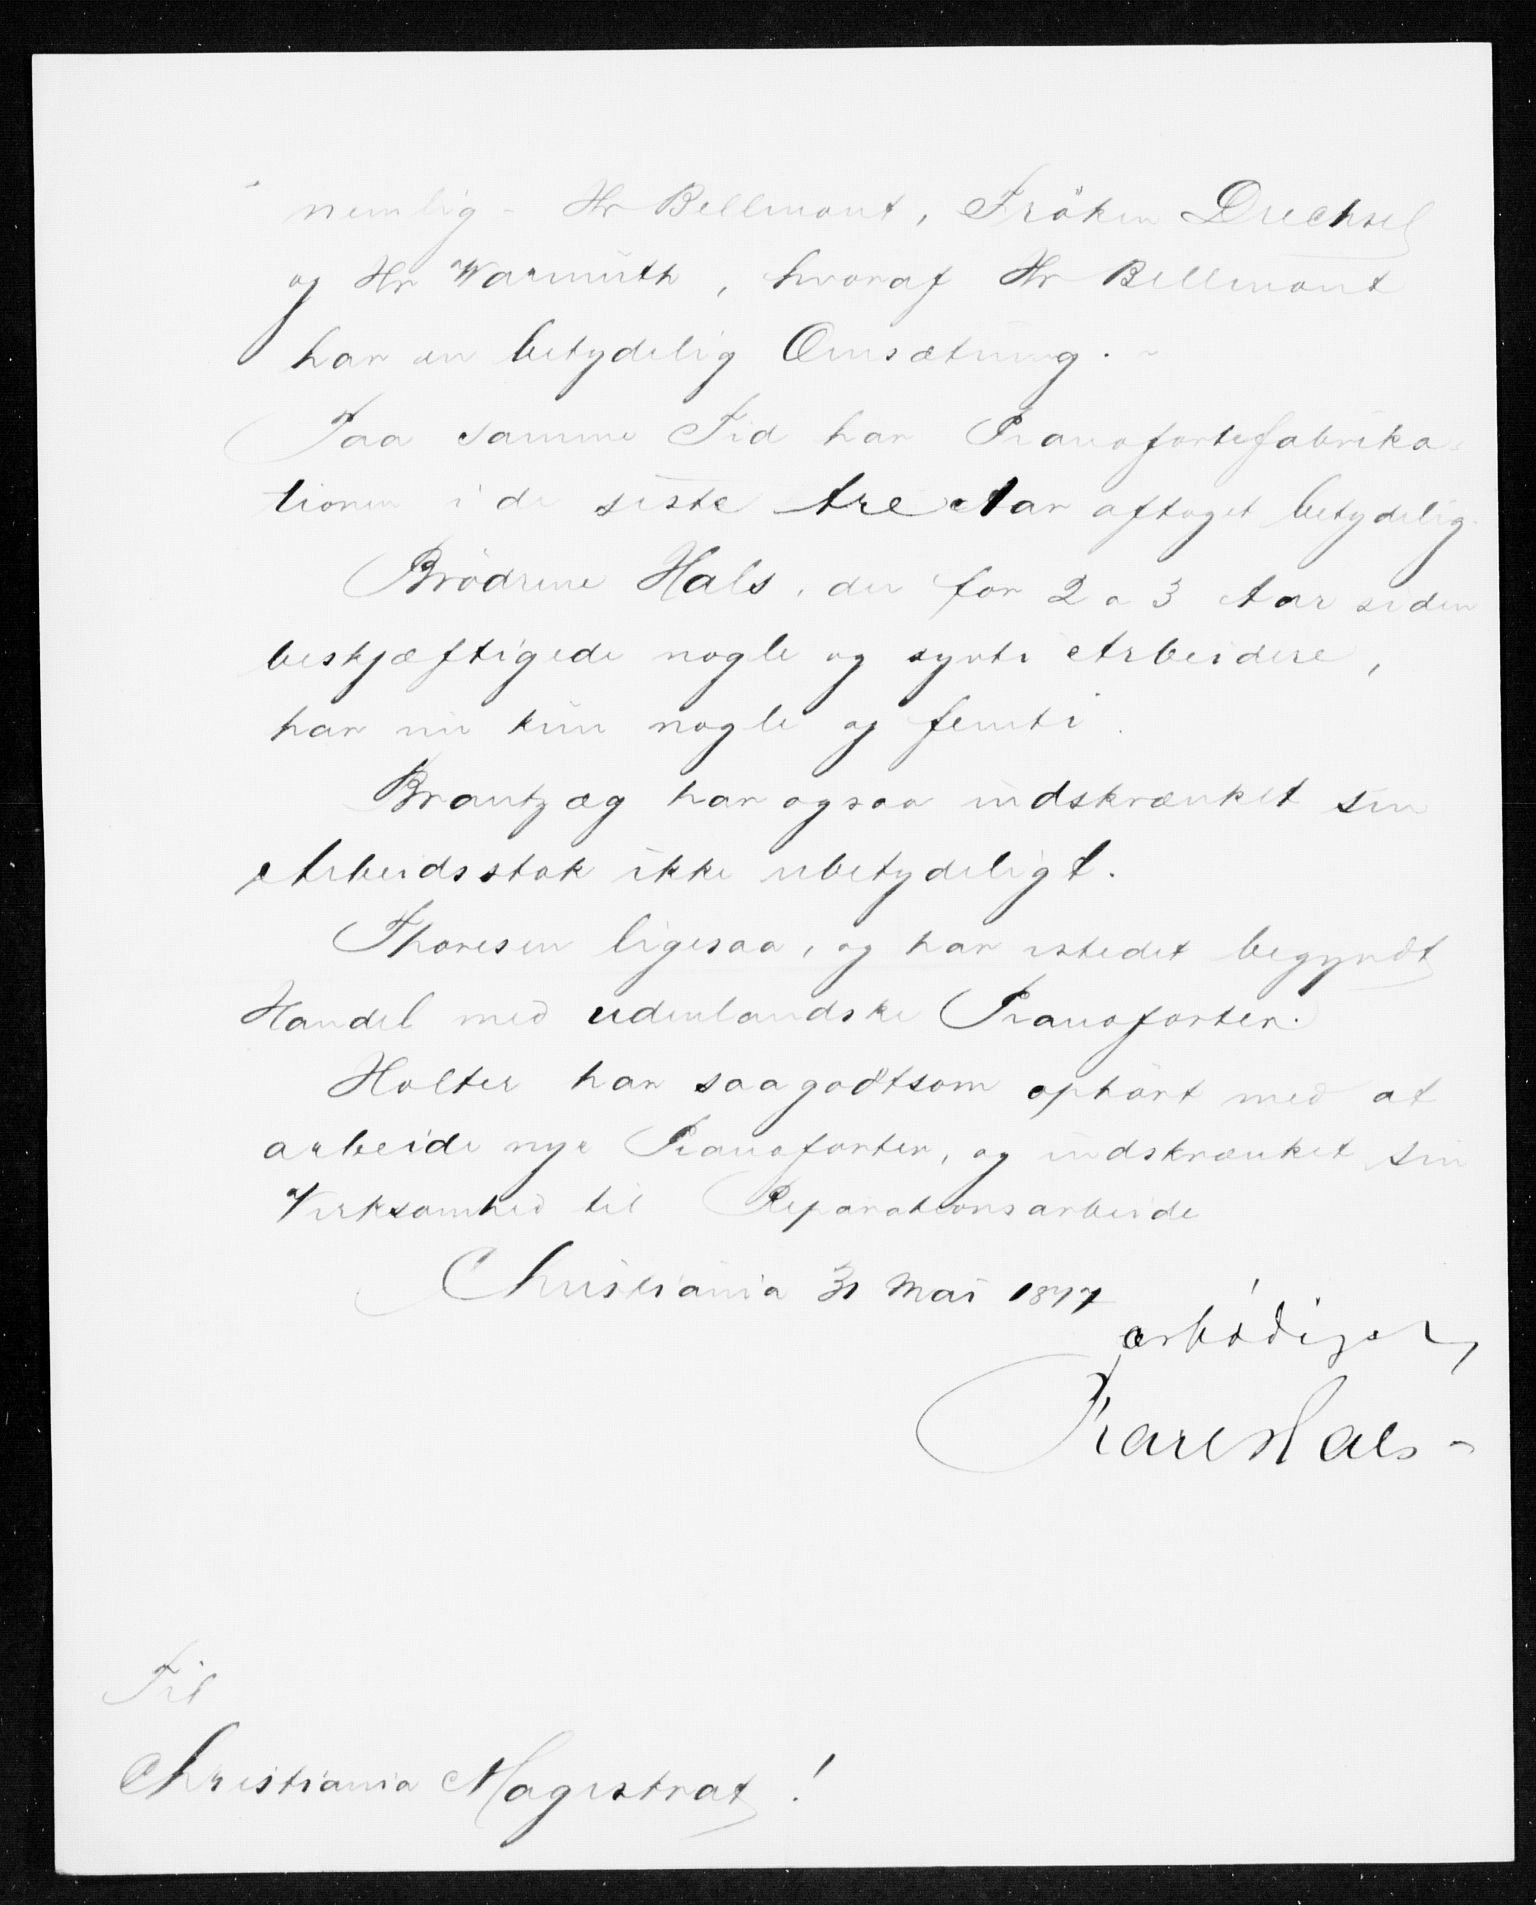 nemlig - Hr Bellmont, Fröken Drechsel
og Hr Warmuth, hvoraf Hr Bellmont
har en betydelig Omsætning. -
Paa samme Tid har Pianofortefabrika-
tionen i de siste tre Aar aftaget betydelig.
Brödrene Hals, der for 2 a 3 Aar siden
beskjæftigede nogle og sytti Arbeidere,
har nu kun nogle og femti.
Brantzæg har ogsaa indskrænket sin
Arbeidsstok ikke ubetydeligt.
Thoresen ligesaa, og har istedet begyndt
Handel med udenlandske Pianoforter.
Holter har saagodtsom ophört med at
arbeide nye Pianoforter, og indskrænket sin
Virksomhed til Reparationsarbeide
Christiania 31 Mai 1877
ærbödigst,
Karl Hals -
Til
Christiania Magistrat!